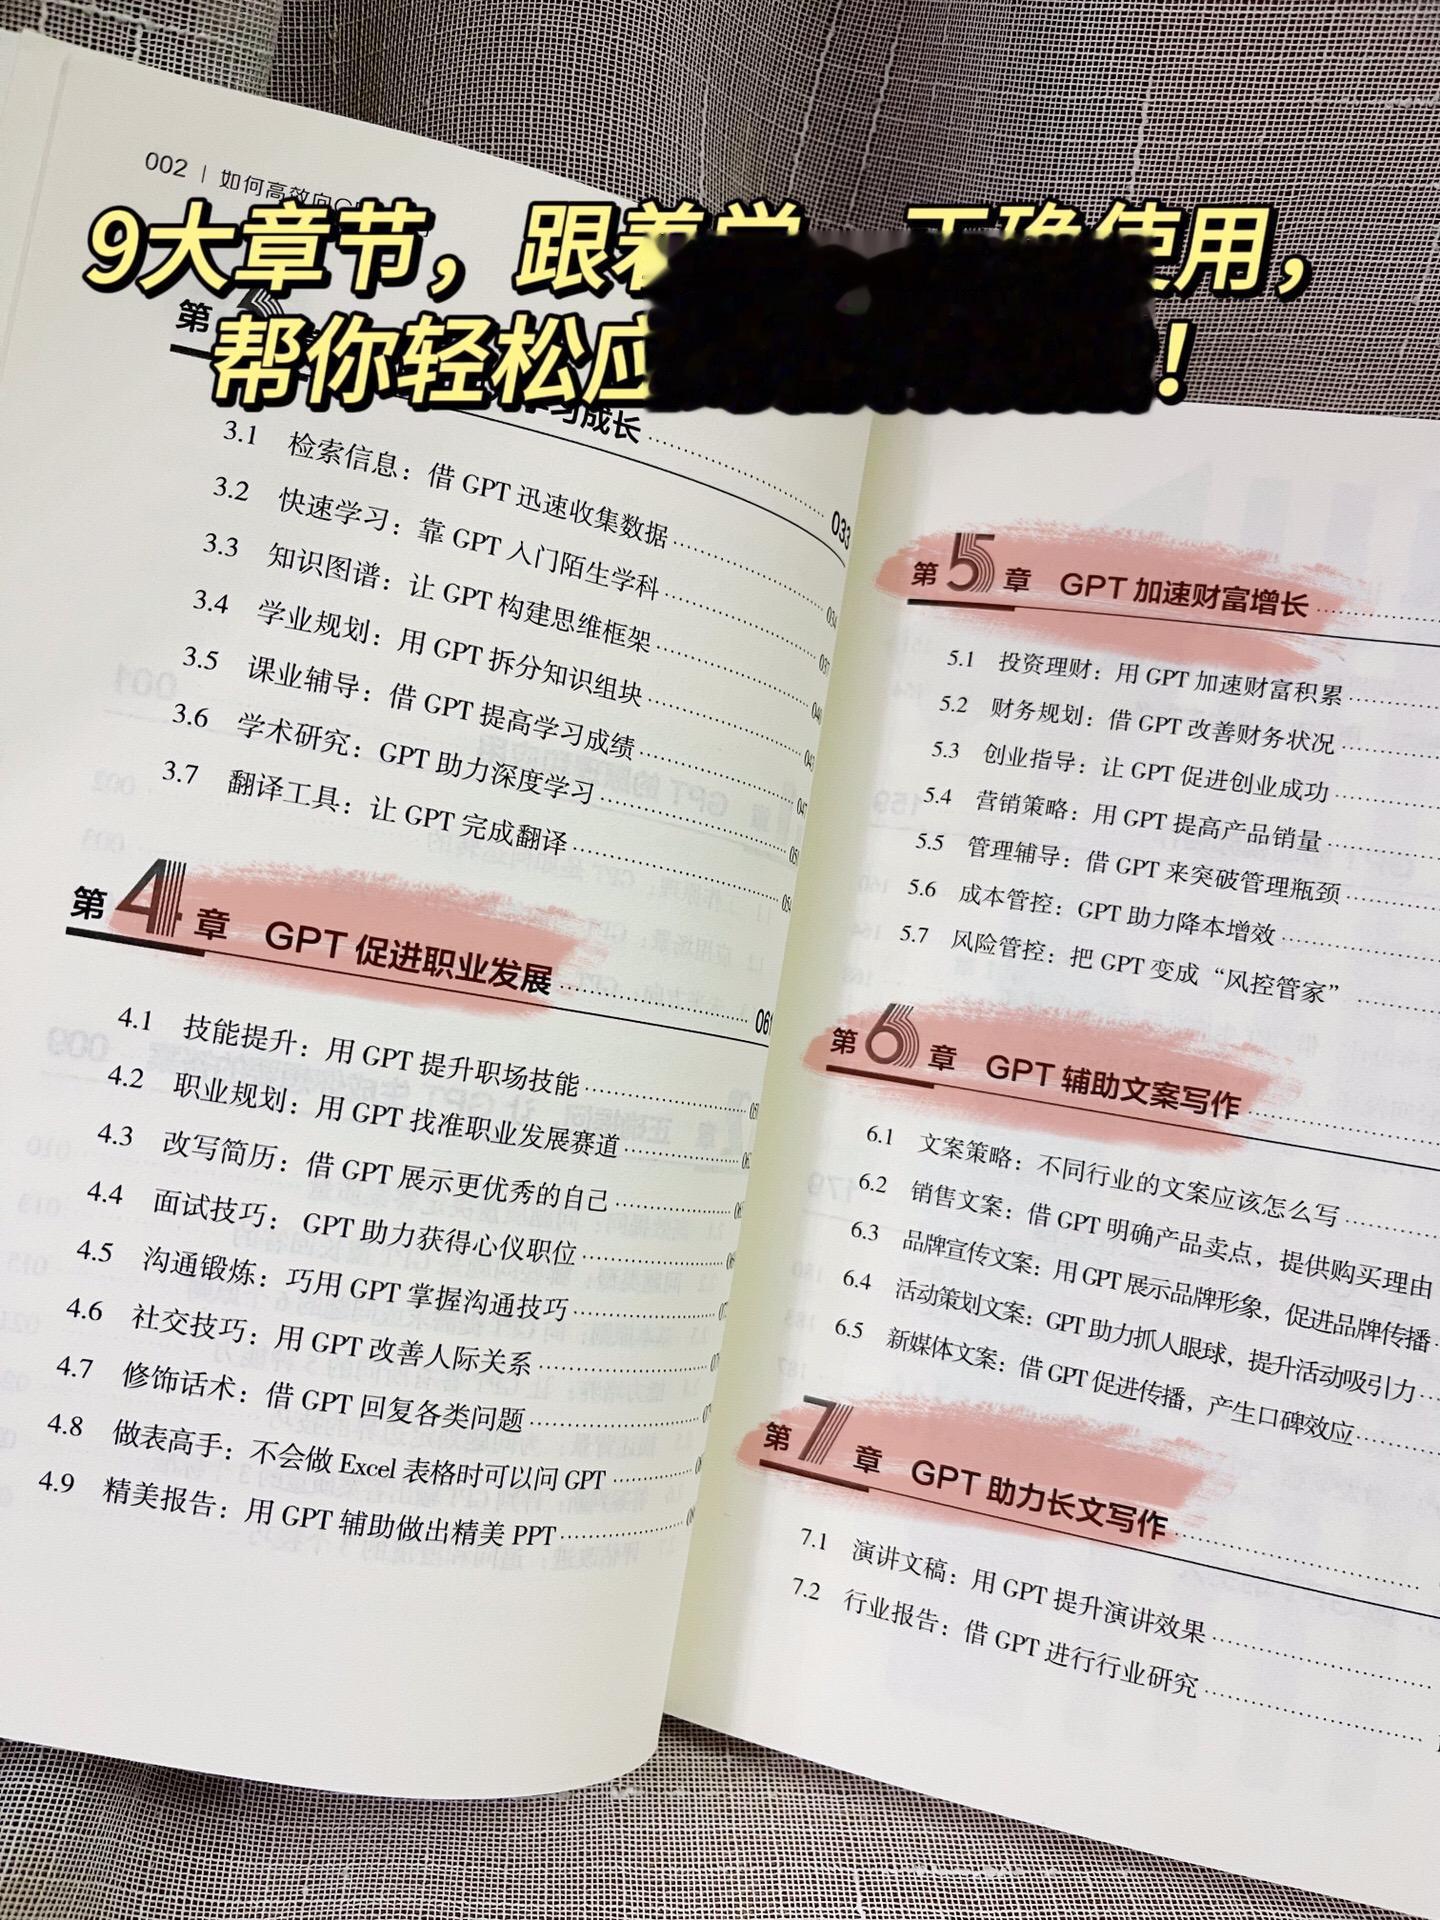 002 | 如何高效向G
9大章节，跟着学 正确使用，
帮你轻松应 ！
第3章 学习成长 033
3.1 检索信息：借 GPT 迅速收集数据 034
3.2 快速学习：靠 GPT 入门陌生学科 037
3.3 知识图谱：让 GPT 构建思维框架 040
3.4 学业规划：用 GPT 拆分知识组块 043
3.5 课业辅导：借 GPT 提高学习成绩 047
3.6 学术研究：GPT 助力深度学习 051
3.7 翻译工具：让 GPT 完成翻译 054
第4章 GPT 促进职业发展 061
4.1 技能提升：用 GPT 提升职场技能
4.2 职业规划：用 GPT 找准职业发展赛道
4.3 改写简历：借 GPT 展示更优秀的自己
4.4 面试技巧： GPT 助力获得心仪职位
4.5 沟通锻炼：巧用 GPT 掌握沟通技巧
4.6 社交技巧：用 GPT 改善人际关系
4.7 修饰话术：借 GPT 回复各类问题
4.8 做表高手：不会做 Excel 表格时可以问 GPT
4.9 精美报告：用 GPT 辅助做出精美 PPT
第5章 GPT 加速财富增长
5.1 投资理财：用 GPT 加速财富积累
5.2 财务规划：借 GPT 改善财务状况
5.3 创业指导：让 GPT 促进创业成功
5.4 营销策略：用 GPT 提高产品销量
5.5 管理辅导：借 GPT 来突破管理瓶颈
5.6 成本管控：GPT 助力降本增效
5.7 风险管控：把 GPT 变成“风控管家”
第6章 GPT 辅助文案写作
6.1 文案策略：不同行业的文案应该怎么写
6.2 销售文案：借 GPT 明确产品卖点，提供购买理由
6.3 品牌宣传文案：用 GPT 展示品牌形象，促进品牌传播
6.4 活动策划文案：GPT 助力抓人眼球，提升活动吸引力
6.5 新媒体文案：借 GPT 促进传播，产生口碑效应
第7章 GPT 助力长文写作
7.1 演讲文稿：用 GPT 提升演讲效果
7.2 行业报告：借 GPT 进行行业研究